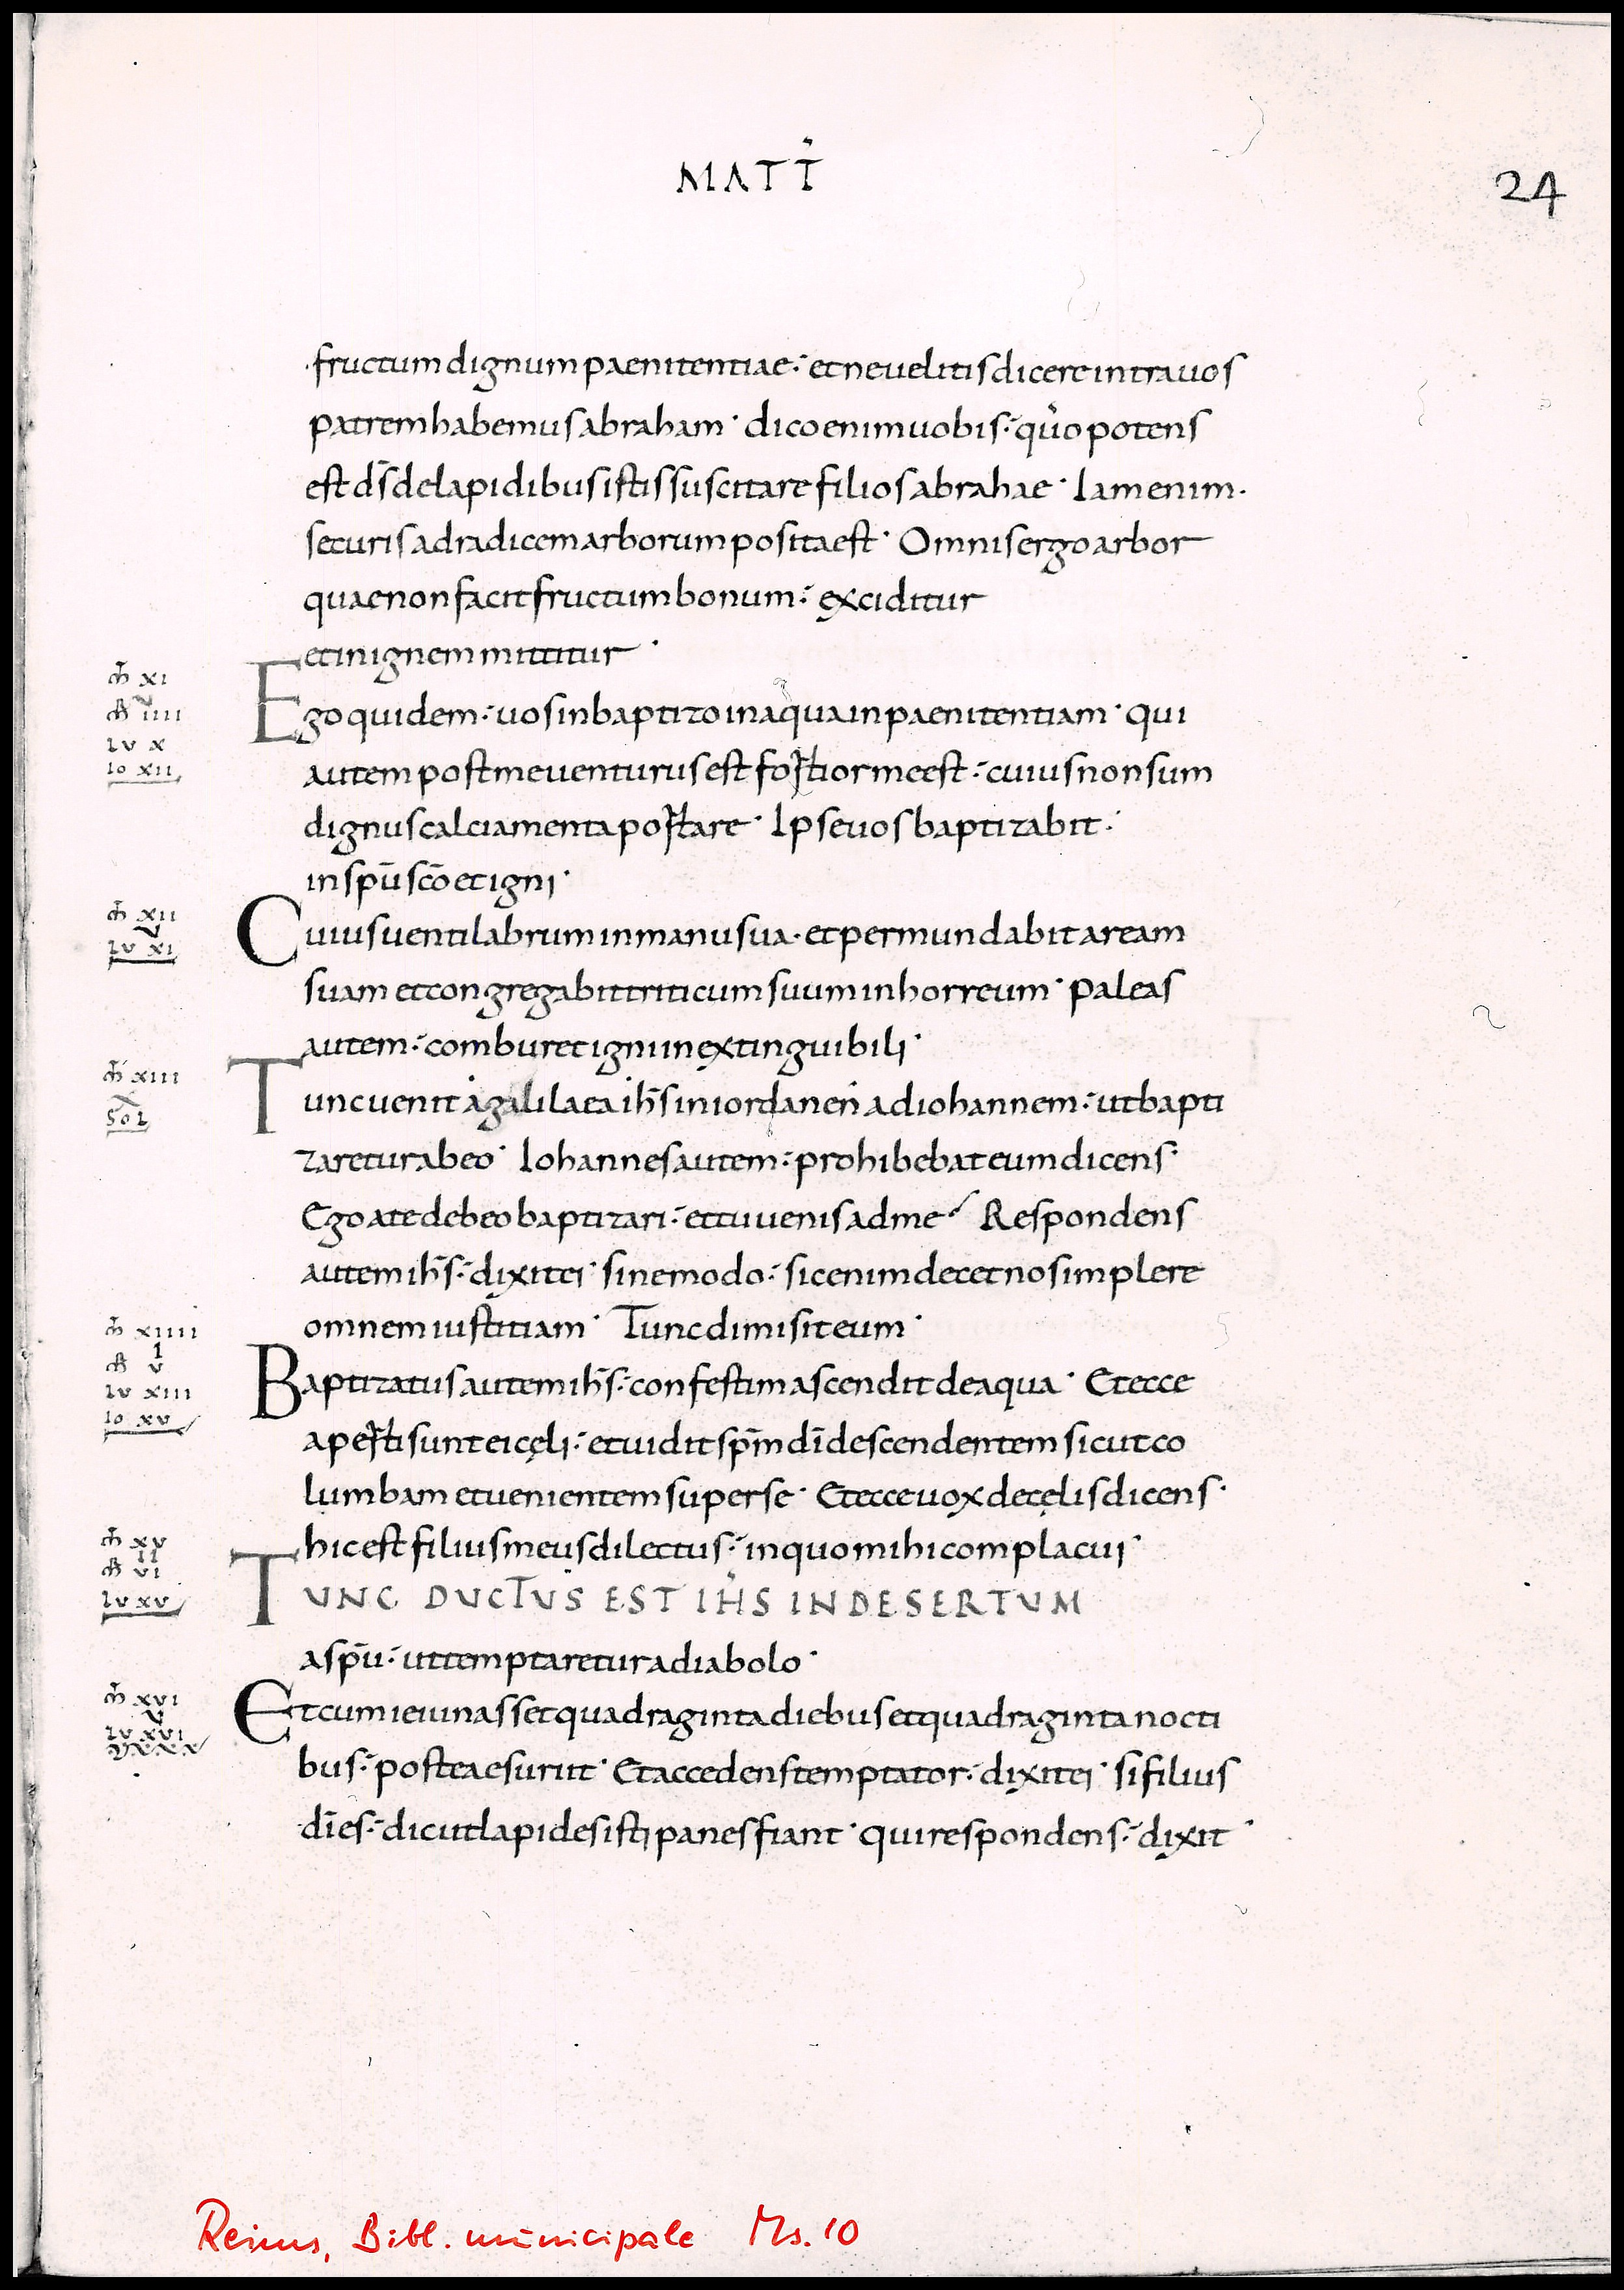 MATT̄
24
fructum dignum paenitentiae · et ne uelitis dicere intra uos
patrem habemus abraham · dico enim uobis · quo potens
est d̄s de lapidibus istis suscitare filios abrahae · Iam enim ·
securis ad radicem arborum posita est · Omnis ergo arbor
quae non facit fructum bonum · exciditur
et in ignem mittitur ·
m̄ xi
m̄r iiii
lu x
io xii
Ego quidem · uos in baptizo in aqua in paenitentiam · qui
autem post me uenturus est fortior me est · cuius non sum
dignus calciamenta portare · Ipse uos baptizabit ·
in sp̄u sc̄o et igni ·
m̄ xii
v
lu xi
Cuius uentilabrum in manu sua · et permundabit aream
suam et congregabit triticum suum in horreum · paleas
autem · comburet igni inextinguibili ·
m̄ xiii
x
sol
Tunc uenit a galilaea ih̄s in iordanen ad iohannem · ut bapti
zaretur ab eo · Iohannes autem · prohibebat eum dicens ·
Ego a te debeo baptizari · et tu uenis ad me · Respondens
autem ih̄s · dixit ei · sine modo · sic enim decet nos implere
omnem iustitiam · Tunc dimisit eum ·
m̄ xiiii
i
m̄r v
lu xiii
io xv
Baptizatus autem ih̄s · confestim ascendit de aqua · Et ecce
aperti sunt ei cęli · et uidit sp̄m dī descendentem sicut co
lumbam et uenientem super se · Et ecce uox de cęlis dicens ·
hic est filius meus dilectus · in quo mihi complacui ·
m̄ xv
ii
m̄r vi
lu xv
TUNC DUCTUS EST IH̄S IN DESERTUM
a sp̄u · ut temptaretur a diabolo ·
m̄ xvi
v
lu xvi
Et cum ieiunasset quadraginta diebus et quadraginta nocti
bus · postea esuriit · Et accedens temptator · dixit ei · si filius
dī es · dic ut lapides isti panes fiant · qui respondens · dixit ·
Reims, Bibl. municipale Ms. 10